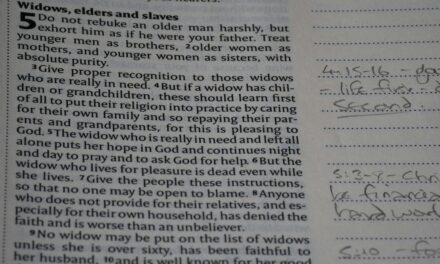 Widows, elders and slaves
5 Do not rebuke an older man harshly, but
exhort him as if he were your father. Treat
younger men as brothers, 2older women as
mothers, and younger women as sisters, with
absolute purity.
3Give proper recognition to those widows
who are really in need. 4But if a widow has chil-
dren or grandchildren, these should learn first
of all to put their religion into practice by caring
for their own family and so repaying their par-
ents and grandparents, for this is pleasing to
God. 5The widow who is really in need and left all
alone puts her hope in God and continues night
and day to pray and to ask God for help. 6But the
widow who lives for pleasure is dead even while
she lives. 7Give the people these instructions,
so that no one may be open to blame. 8Anyone
who does not provide for their relatives, and es-
pecially for their own household, has denied the
faith and is worse than an unbeliever.
9No widow may be put on the list of widows
unless she is over sixty, has been faithful to
her husband, 10and is well known for her good
4:15-16 -
- life first -
second
5:3-4 - Chr
be financ
hard work
5:10 - f